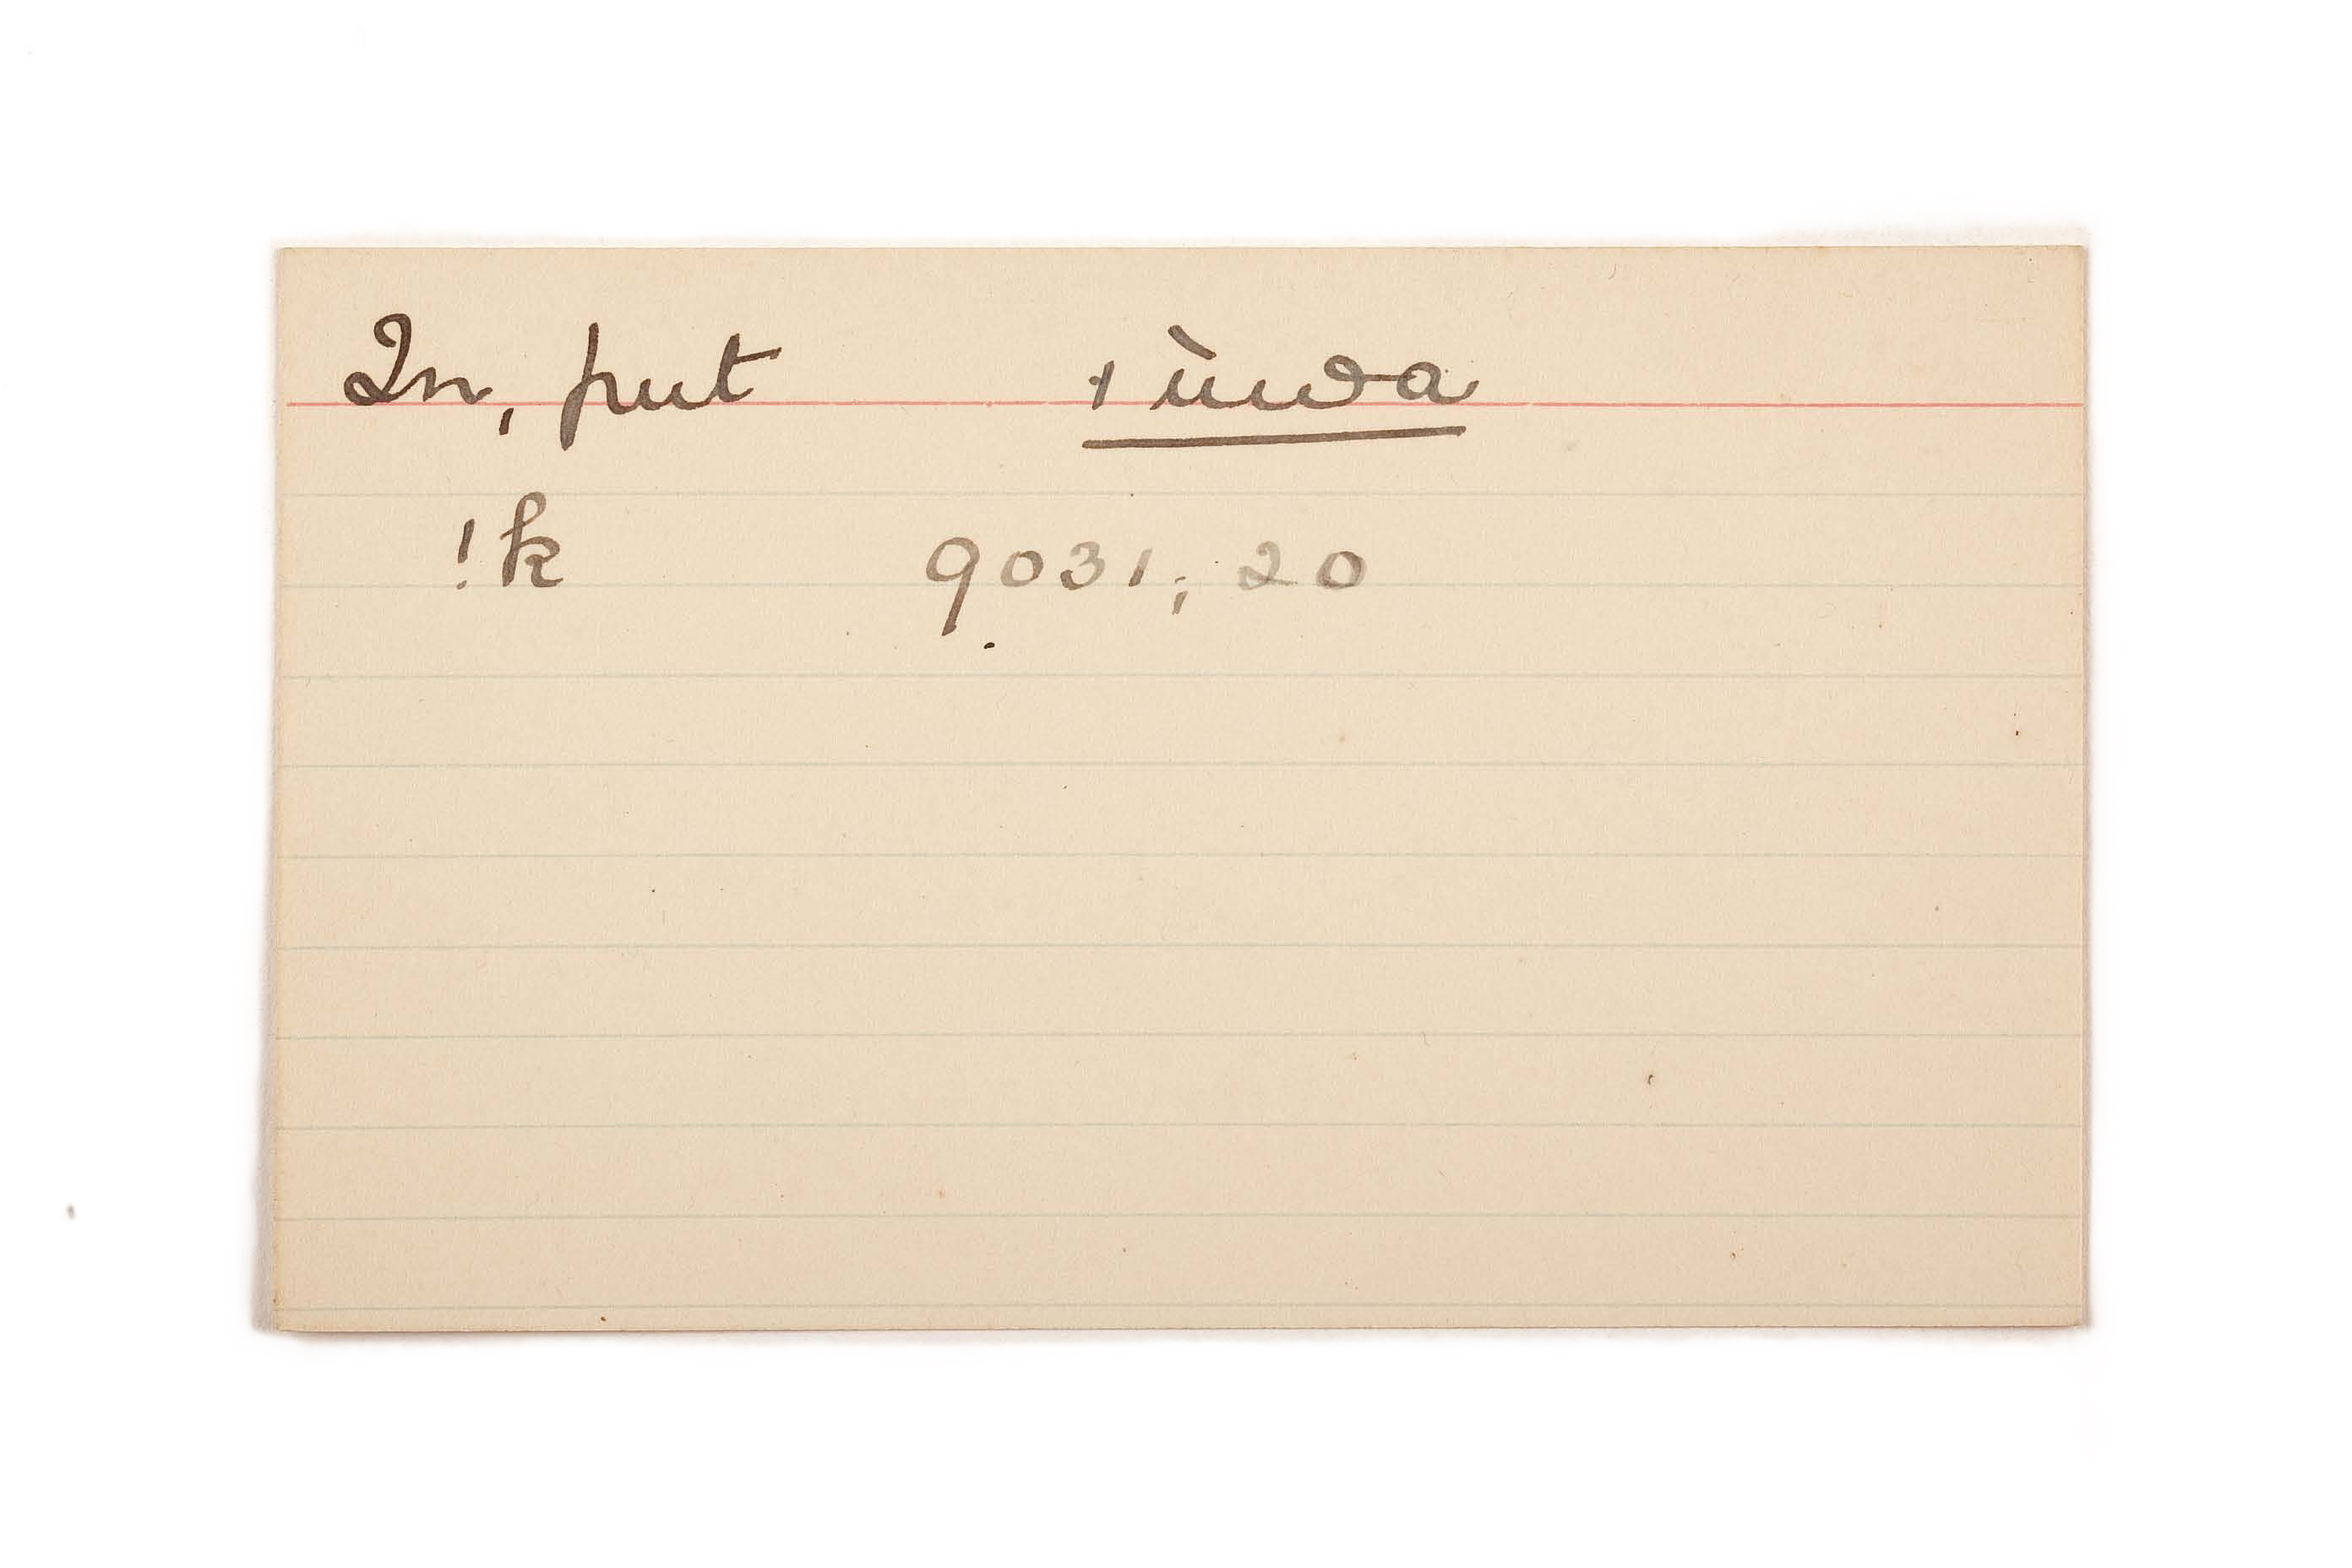 In, put ı ùwa
!k 9031; 20